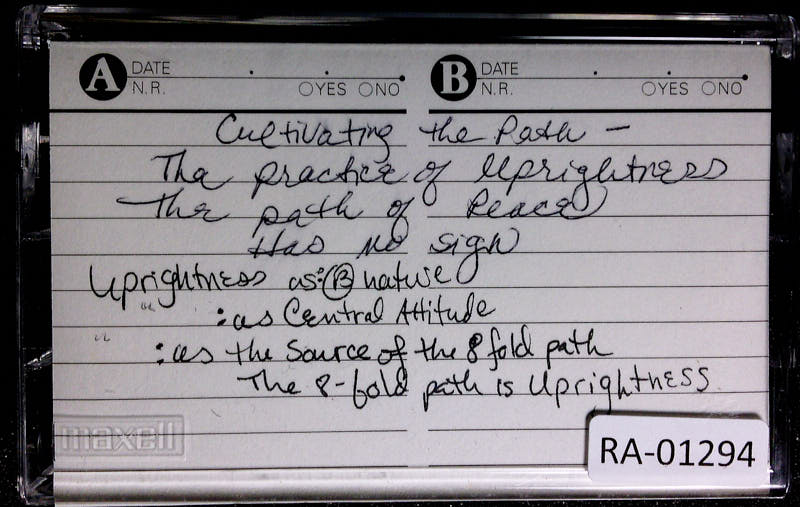 A DATE N.R. YES NO B DATE N.R. YES NO
Cultivating the Path -
The practice of Uprightness
The path of Peace
Has no sign
Uprightness as: B nature
" : as Central Attitude
" : as the Source of the 8 fold path
The 8-fold path is Uprightness
maxell
RA-01294